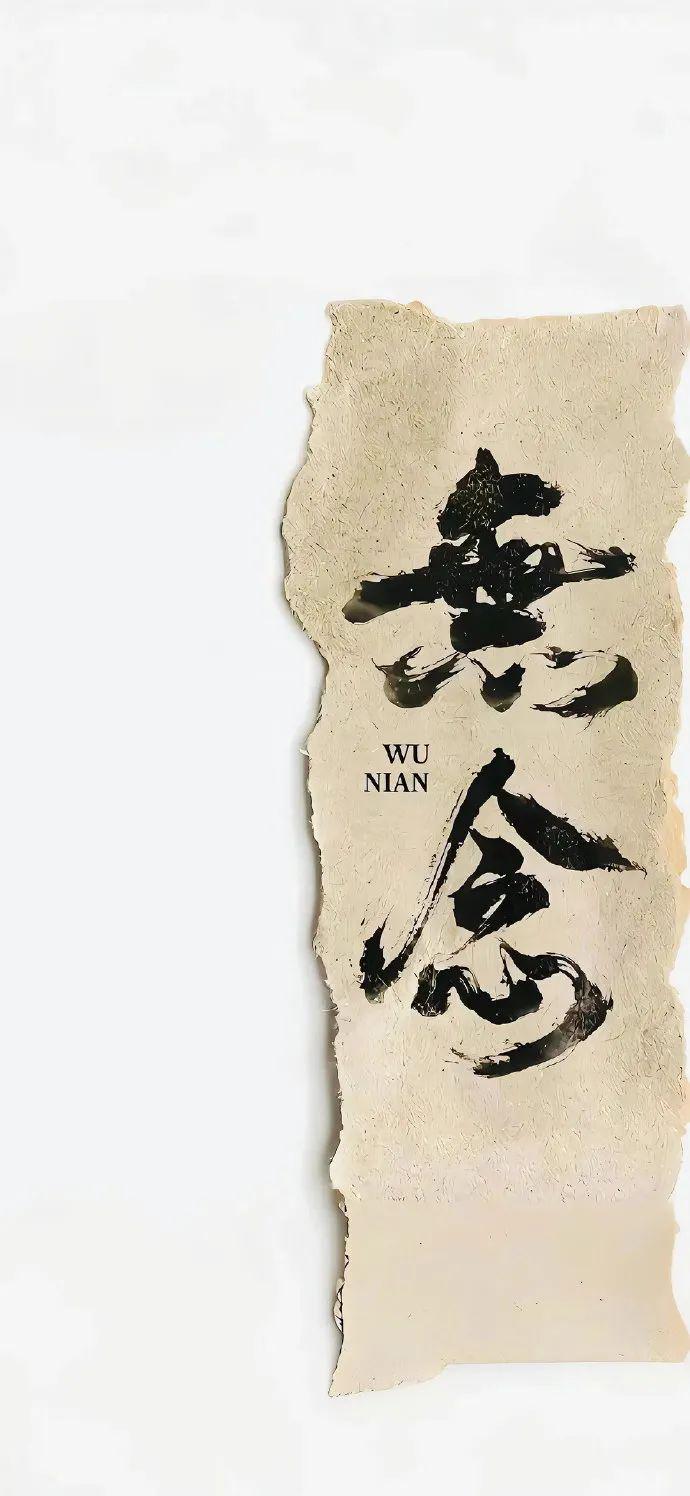 無
WU
NIAN
念